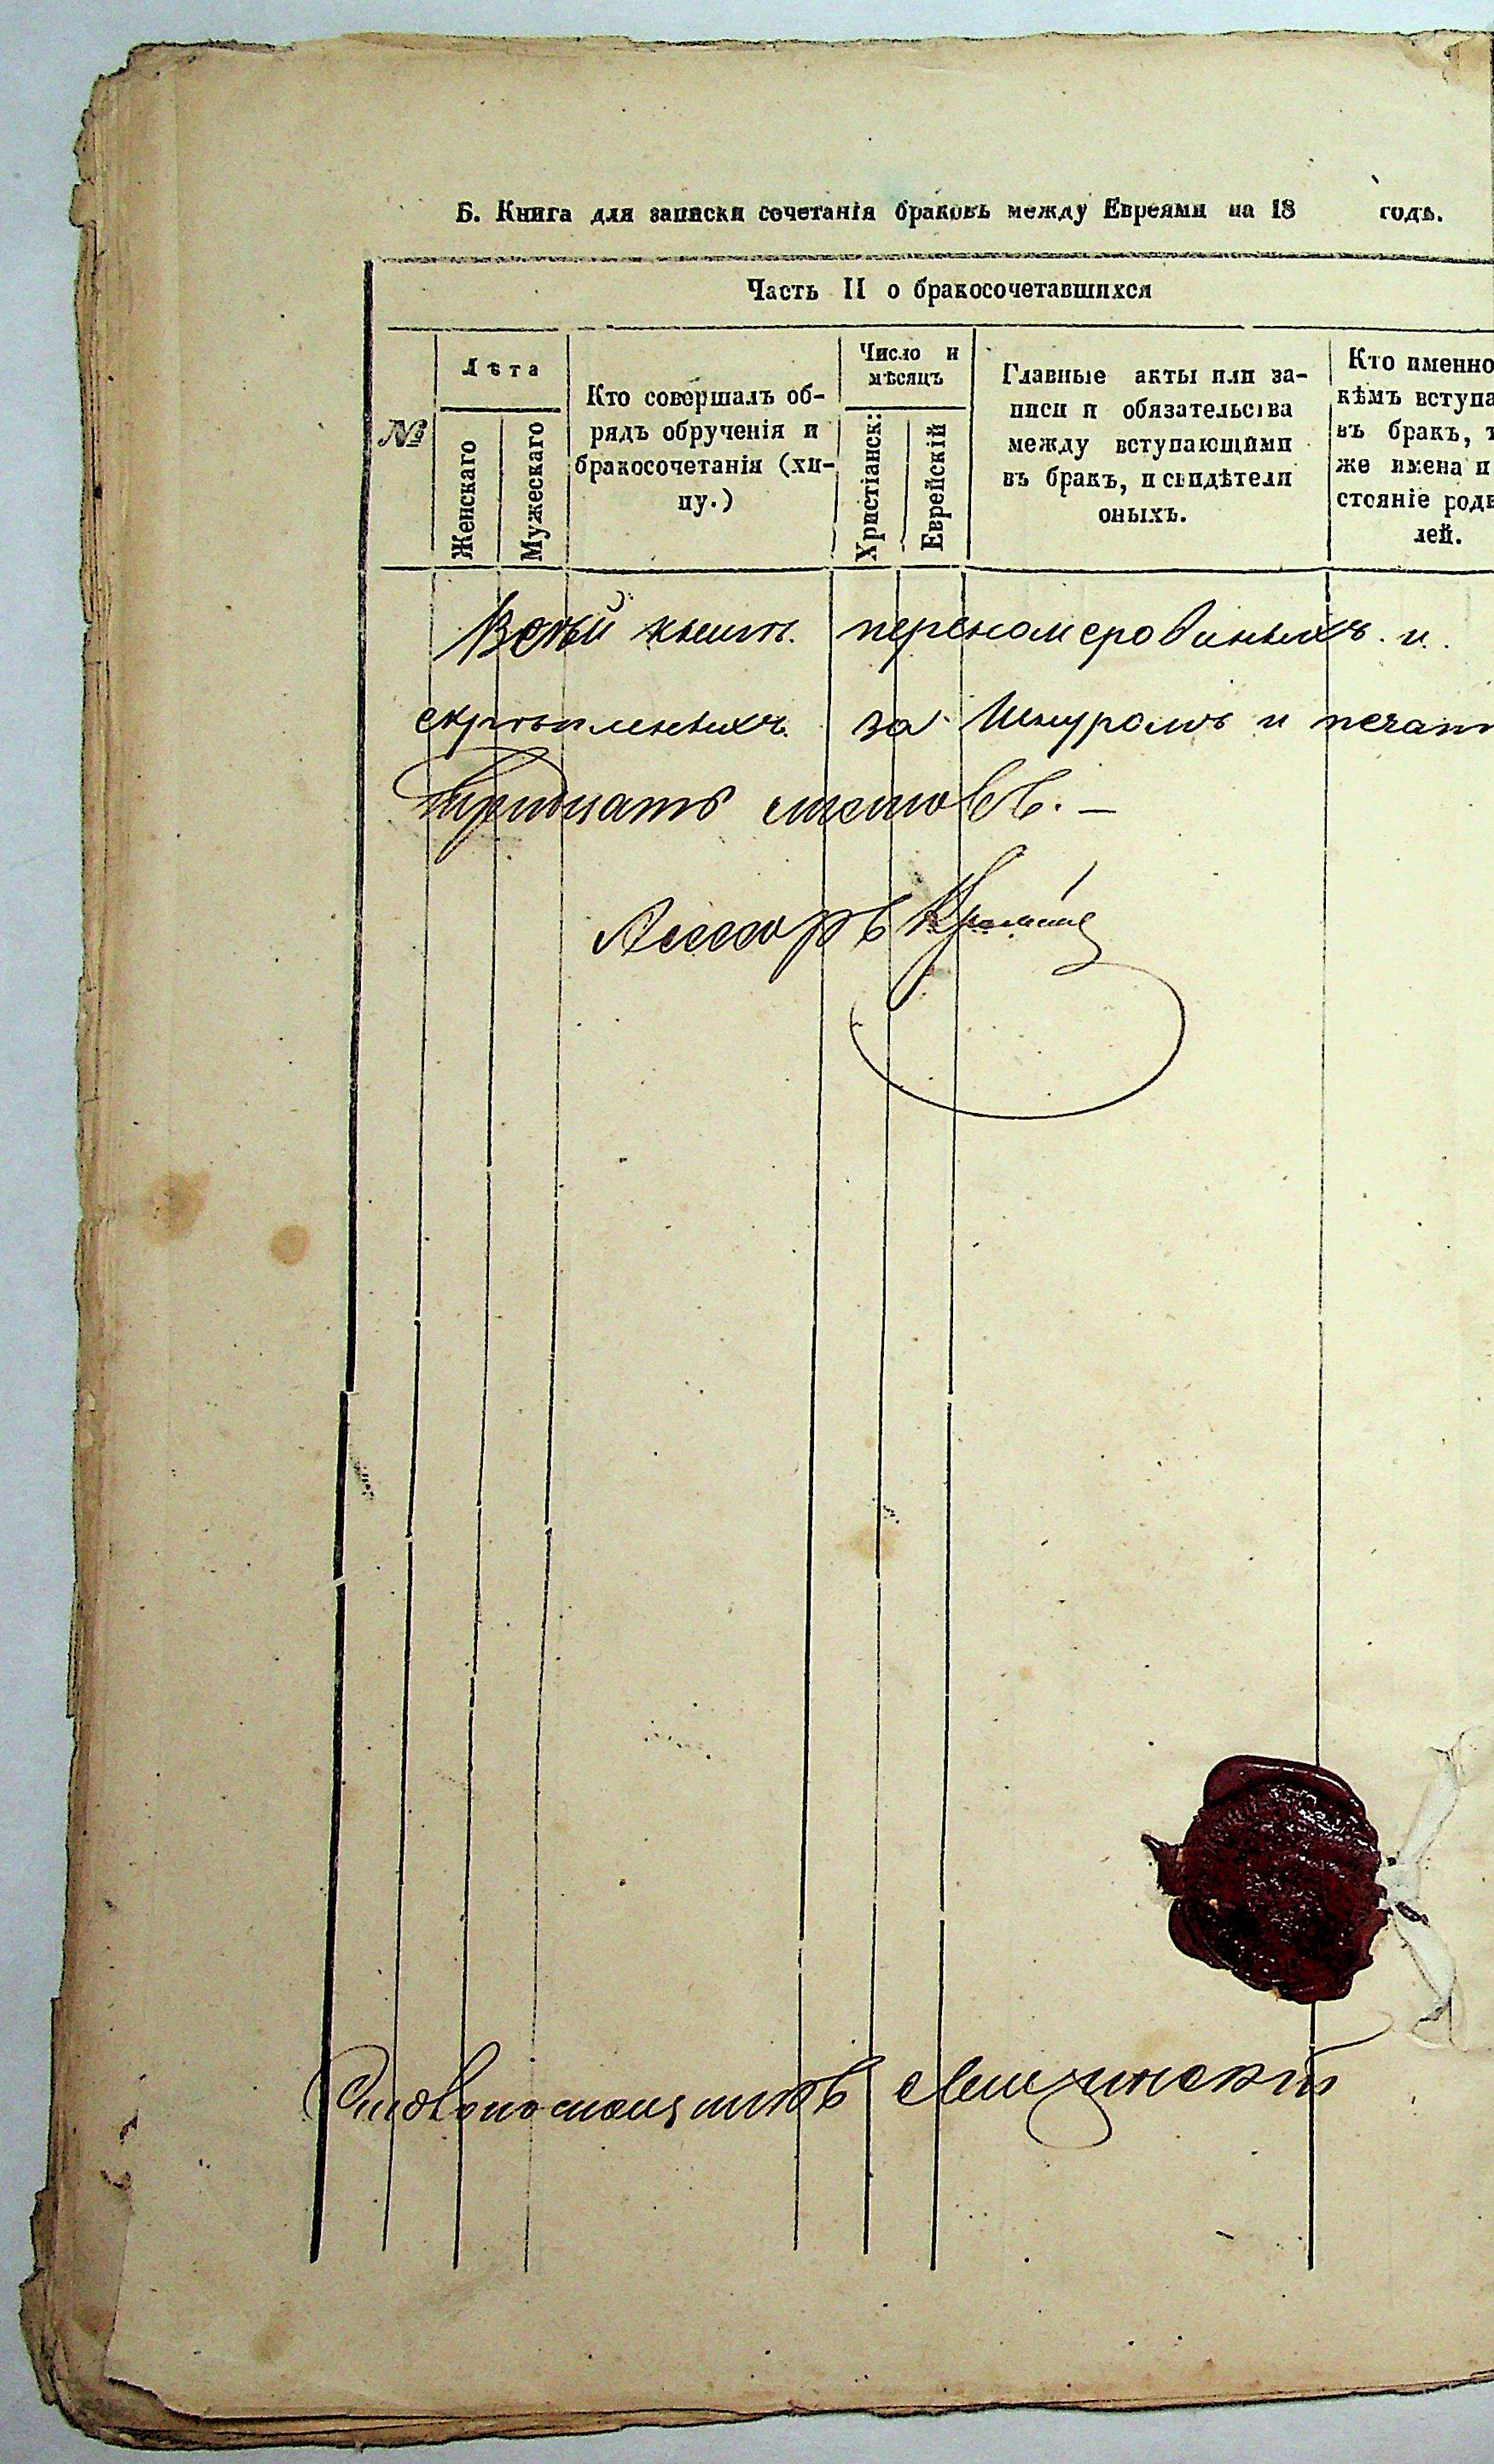 Б. Книга для записки сочетанія браковъ между Евреями на 18 годъ.
Часть II о бракосочетавшихся
№
Лѣта
Женскаго
Мужескаго
Кто совершалъ об-
рядъ обрученія и
бракосочетанія (хи-
пу.)
Число и
мѣсяцъ
Христіанск:
Еврейскій
Главные акты или за-
писи и обязательства
между вступающими
въ бракъ, и свидѣтели
оныхъ.
Кто именно
кѣмъ вступа
въ бракъ, т
же имена и
стояніе роди
лей.
Всѣй книги переномерованныхъ и
скрѣпленныхъ за Шнуромъ и печат
тридцать листовъ. —
Асесоръ